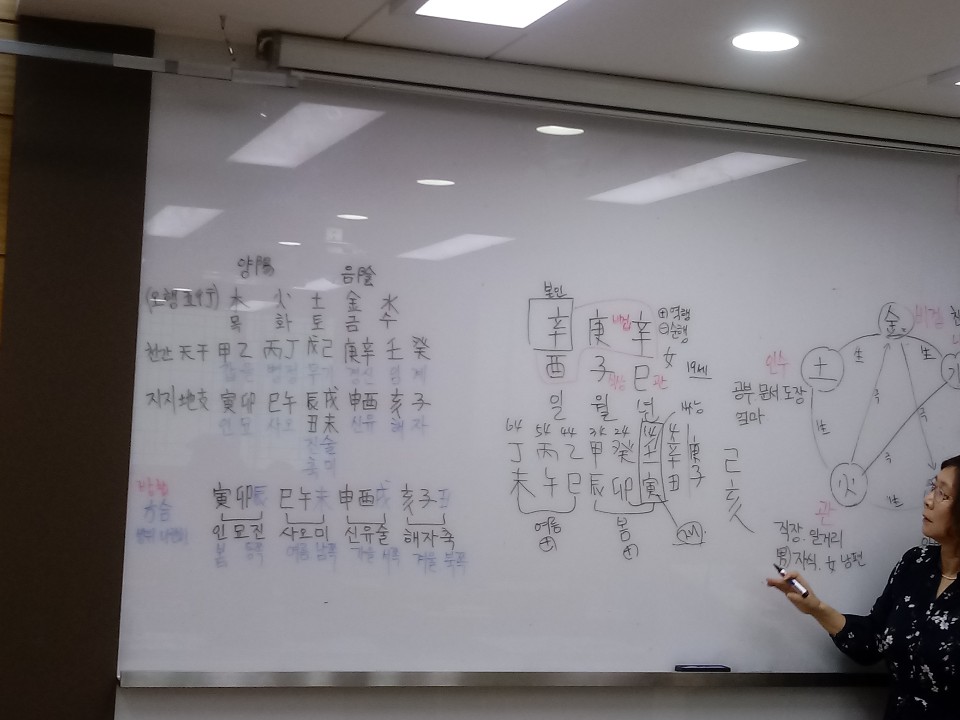 양陽 음陰
木 火 土 金 水
목 화 토 금 수
천간 天干 甲乙 丙丁 戊己 庚辛 壬 癸
무기 경신 임 계
지지 地支 寅卯 巳午 辰戌 申酉 亥 子
인묘 사오 丑未 신유 해 자
진술
축미
方合
寅卯辰 巳午未 申酉戌 亥子丑
인묘진 사오미 신유술 해자축
봄 동쪽 여름 남쪽 가을 서쪽 겨울 북쪽
본인
辛 庚 비겁 辛
⊕역행
⊖순행
酉 子 巳 관 女 19세
일 월 년
64 54 44 34 24 14 4
丁 丙 乙 甲 癸 壬 辛 庚
未 午 巳 辰 卯 寅 丑 子
여름 봄
⊕ ⊕
己
亥
金 비겁
인수
土
生 生
공부 문서 도장
엄마
生 극 극 극
火 生
관
직장. 일거리
男)자식. 女 남편